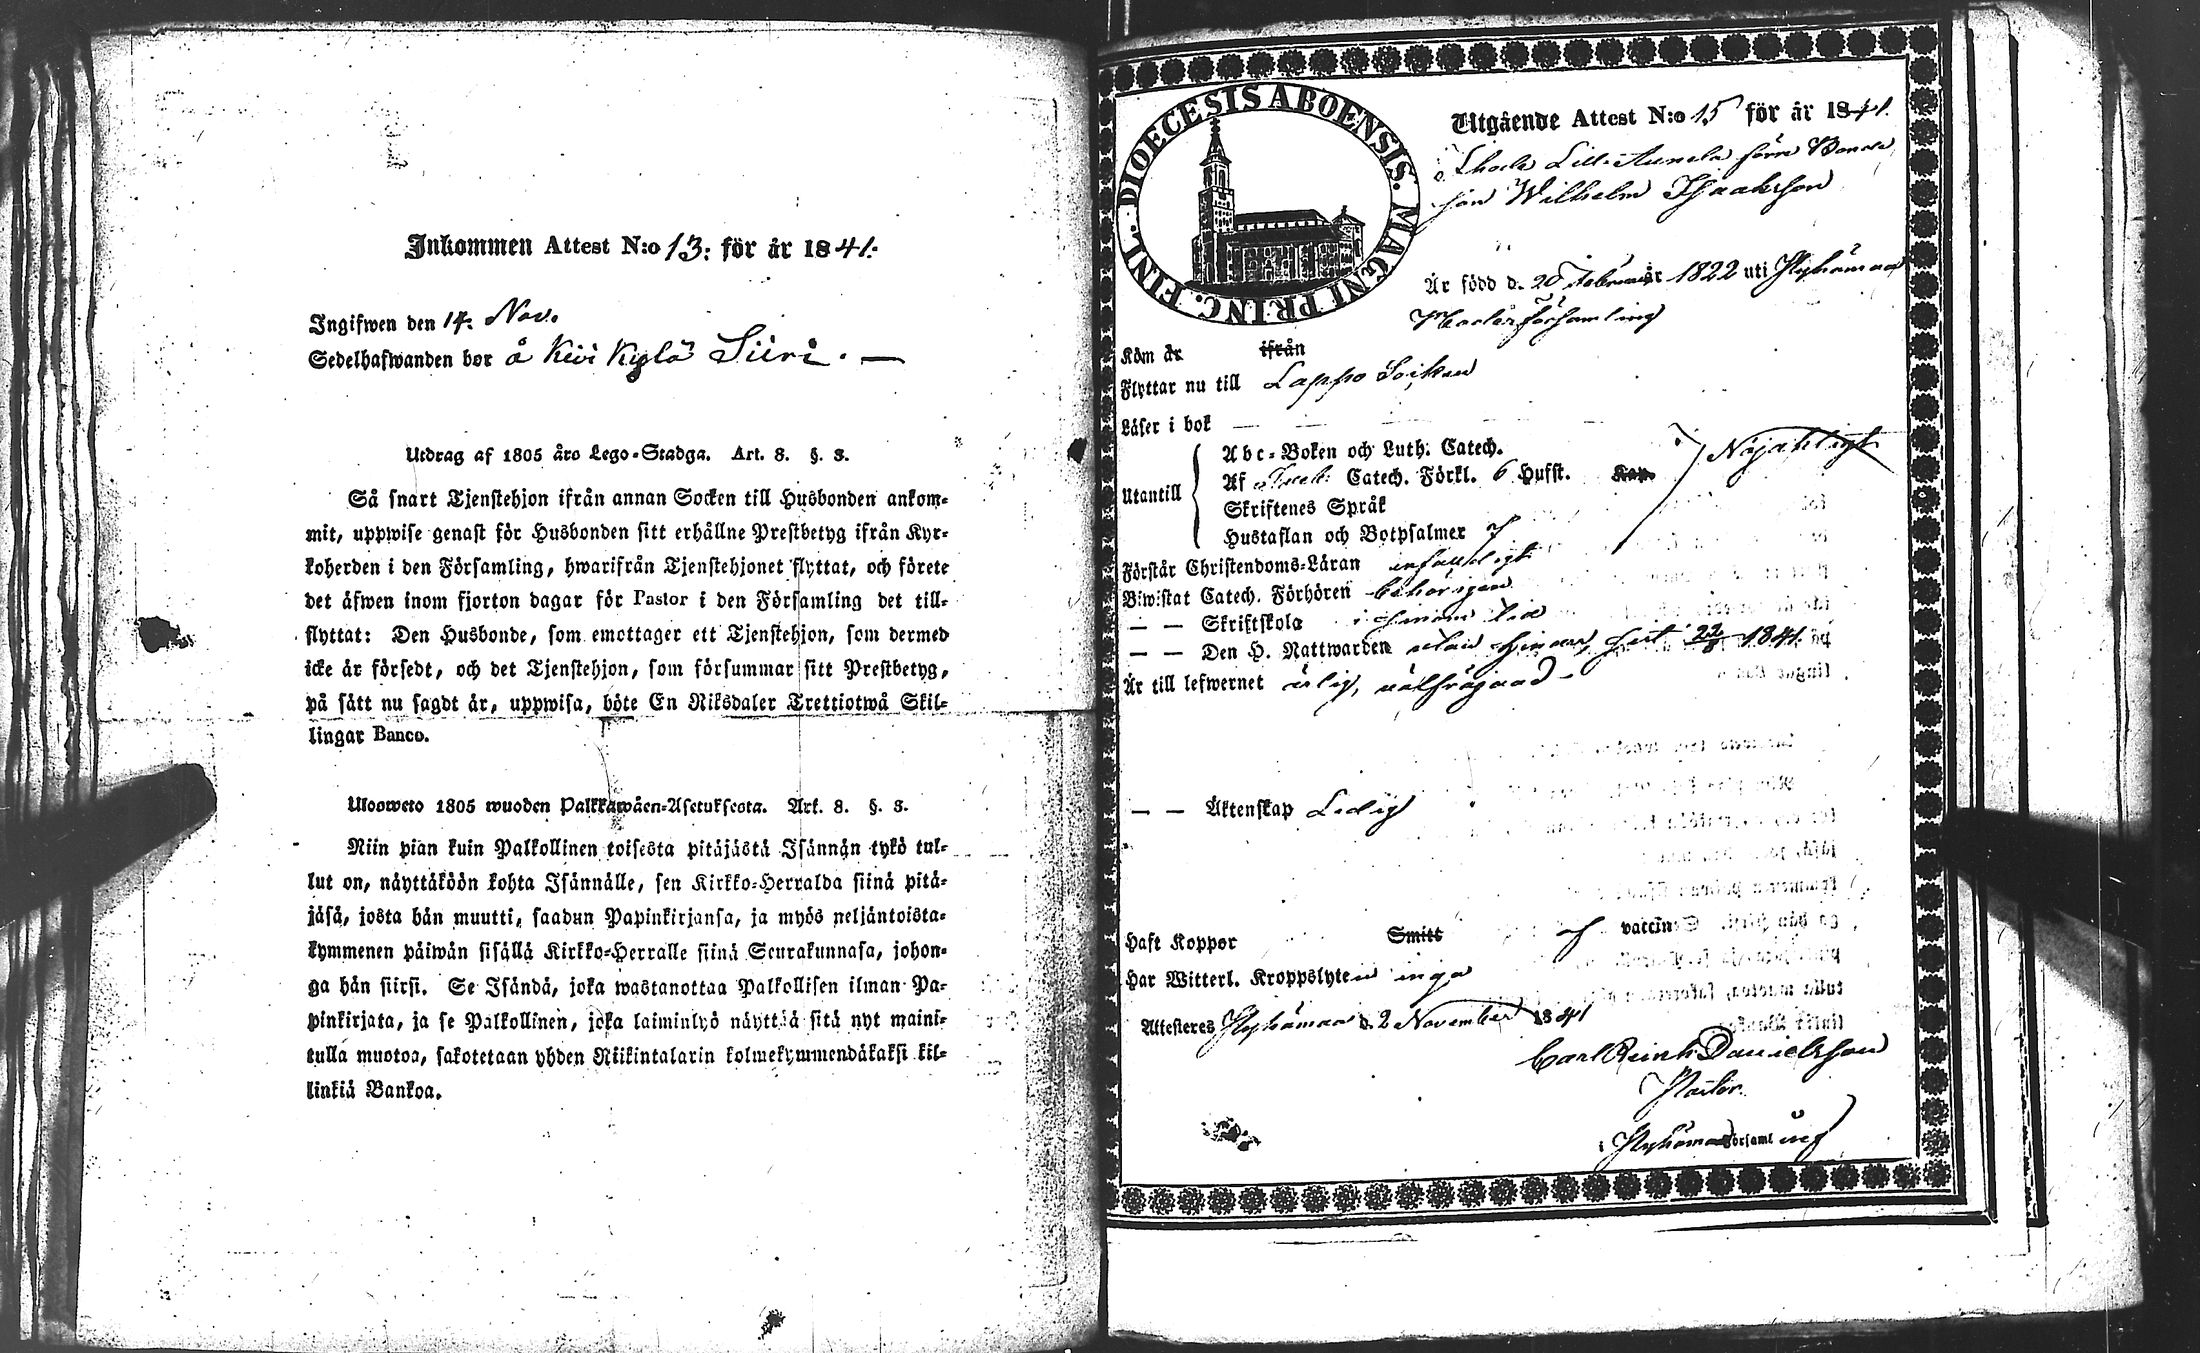 Inkommen Attest N:o 13: för år 1841:
Ingifwen den 14: Nov.
Sedelhafwanden bor å Kiwi Kylä Siiri. —
Utdrag af 1805 åro Lego-Stadga. Art. 8. §. 3.
Så snart Tjenstehjon ifrån annan Socken till Husbonden ankom-
mit, uppwise genast för Husbonden sitt erhållne Prestbetyg ifrån Kyr-
koherden i den Församling, hwarifrån Tjenstehjonet flyttat, och förete
det äfwen inom fjorton dagar för Pastor i den Församling det till-
flyttat: Den Husbonde, som emottager ett Tjenstehjon, som dermed
icke är försedt, och det Tjenstehjon, som försummar sitt Prestbetyg,
på sätt nu sagdt är, uppwisa, böte En Riksdaler Trettiotwå Skil-
lingar Banco.
Uloosweto 1805 wuoden Palkkawäen-Asetuksesta. Art. 8. §. 3.
Niin pian kuin Palkollinen toisesta pitäjästä Isännän tykö tul-
lut on, näyttäköön kohta Isännälle, sen Kirkko-Herralda siinä pitä-
jäsä, josta hän muutti, saadun Papinkirjansa, ja myös neljäntoista-
kymmenen päiwän sisällä Kirkko-Herralle siinä Seurakunnasa, johon-
ga hän siirsi. Se Isändä, joka wastanottaa Palkollisen ilman Pa-
pinkirjata, ja se Palkollinen, joka laiminlyö näyttää sitä nyt maini-
tulla muotoa, sakotetaan yhden Riikintalarin kolmekymmendäkaksi kil-
linkiä Bankoa.
DIOECESIS ABOENSIS. MAGNI PRINC. FINL.
Utgående Attest N:o 15 för år 1841.
Lilla Aunela Bonde
son Wilhelm Isaaksson
Är född d. 20 Februari år 1822 uti Hyhämaa
Moderförsamling
Kom år ifrån
Flyttar nu till Lappo Socken
Läser i bok — — — — —
Utantill
Abc-Boken och Luth. Catech.
Af Catech. Förkl. 6 Hufst. Kap.
Nöjaktigt
Skriftenes Språk
Hustaflan och Botpsalmer
Förstår Christendoms-Läran enfaldigt
Biwistat Catech. Förhören behörigen
— — Skriftskola i sinom tid
— — Den H. Nattwarden utan hinder, sist 22/8 1841.
Är till lefwernet ärlig, välfräjdad
— — Äktenskap Ledig
Haft Koppor Smitt af vaccin
Har Witterl. Kroppslyten inga
Attesteras Hyhämaa d. 2 November 1841
Carl Reinh. Danielsson
Pastor.
Hyhämaa Församling